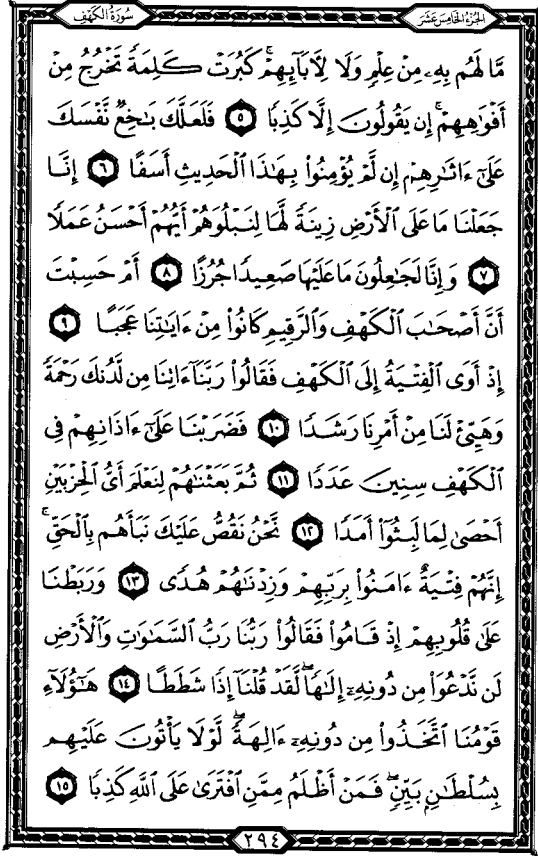 سُورَةُ الكَهْفِ
الجُزْءُ الخَامِسَ عَشَرَ
مَّا لَهُم بِهِۦ مِنْ عِلْمٍ وَلَا لِءَابَآئِهِمْ ۚ كَبُرَتْ كَلِمَةً تَخْرُجُ مِنْ
أَفْوَٰهِهِمْ ۚ إِن يَقُولُونَ إِلَّا كَذِبًا ٥ فَلَعَلَّكَ بَٰخِعٌ نَّفْسَكَ
عَلَىٰٓ ءَاثَٰرِهِمْ إِن لَّمْ يُؤْمِنُوا۟ بِهَٰذَا ٱلْحَدِيثِ أَسَفًا ٦ إِنَّا
جَعَلْنَا مَا عَلَى ٱلْأَرْضِ زِينَةً لَّهَا لِنَبْلُوَهُمْ أَيُّهُمْ أَحْسَنُ عَمَلًا
٧ وَإِنَّا لَجَٰعِلُونَ مَا عَلَيْهَا صَعِيدًا جُرُزًا ٨ أَمْ حَسِبْتَ
أَنَّ أَصْحَٰبَ ٱلْكَهْفِ وَٱلرَّقِيمِ كَانُوا۟ مِنْ ءَايَٰتِنَا عَجَبًا ٩
إِذْ أَوَى ٱلْفِتْيَةُ إِلَى ٱلْكَهْفِ فَقَالُوا۟ رَبَّنَآ ءَاتِنَا مِن لَّدُنكَ رَحْمَةً
وَهَيِّئْ لَنَا مِنْ أَمْرِنَا رَشَدًا ١٠ فَضَرَبْنَا عَلَىٰٓ ءَاذَانِهِمْ فِى
ٱلْكَهْفِ سِنِينَ عَدَدًا ١١ ثُمَّ بَعَثْنَٰهُمْ لِنَعْلَمَ أَىُّ ٱلْحِزْبَيْنِ
أَحْصَىٰ لِمَا لَبِثُوٓا۟ أَمَدًا ١٢ نَّحْنُ نَقُصُّ عَلَيْكَ نَبَأَهُم بِٱلْحَقِّ ۚ
إِنَّهُمْ فِتْيَةٌ ءَامَنُوا۟ بِرَبِّهِمْ وَزِدْنَٰهُمْ هُدًى ١٣ وَرَبَطْنَا
عَلَىٰ قُلُوبِهِمْ إِذْ قَامُوا۟ فَقَالُوا۟ رَبُّنَا رَبُّ ٱلسَّمَٰوَٰتِ وَٱلْأَرْضِ
لَن نَّدْعُوَا۟ مِن دُونِهِۦٓ إِلَٰهًا ۖ لَّقَدْ قُلْنَآ إِذًا شَطَطًا ١٤ هَٰٓؤُلَآءِ
قَوْمُنَا ٱتَّخَذُوا۟ مِن دُونِهِۦٓ ءَالِهَةً ۖ لَّوْلَا يَأْتُونَ عَلَيْهِم
بِسُلْطَٰنٍۭ بَيِّنٍ ۖ فَمَنْ أَظْلَمُ مِمَّنِ ٱفْتَرَىٰ عَلَى ٱللَّهِ كَذِبًا ١٥
٢٩٤